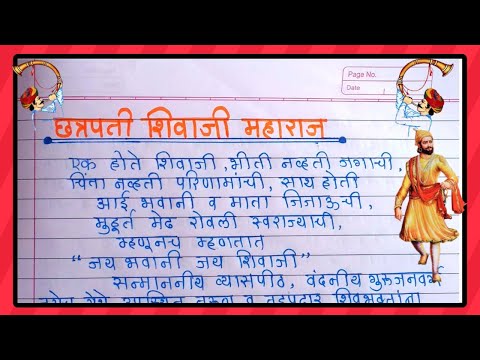 Page No.
Date
छत्रपती शिवाजी महाराज
एक होते शिवाजी, भ्रीती नव्हती जगाची,
चिंता नव्हती परिणामाची, साथ होती
आई भवानी व माता जिजाऊची,
मुहूर्त मेढ रोवली स्वराज्याची,
म्हणूनच म्हणतात
"जय भवानी जय शिवाजी"
सन्माननीय व्यासपीठ, वंदनीय गुरुजनवर्ग
व